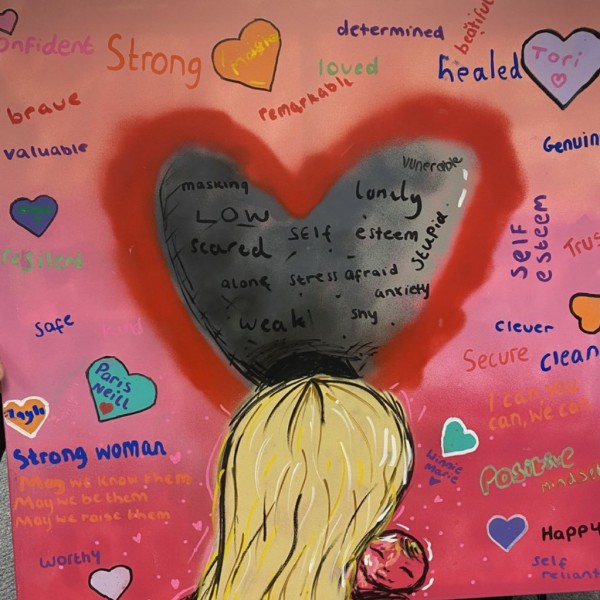 onfident
Strong
Imagine
determined
beatiful
loved
remarkable
healed
Tori
brave
valuable
Genuin
masking
LOW
scared
alone
weak
self esteem
stress afraid
anxiety
shy
lonely
vunerable
stupid
self esteem
Trus
resilient
safe
kind
clever
Secure
clean
Paris
Neill
Kayla
I can, you
can, we can
Strong woman
May we know them
May we be them
May we raise them
Winnie
Marie
Positive
mindset
Happy
worthy
self
reliant